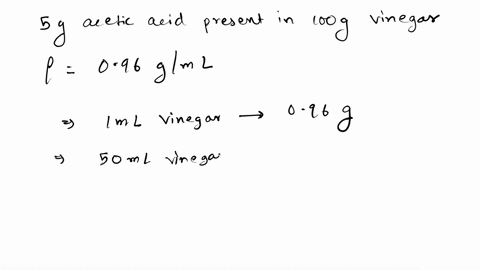 5g acetic acid present in 100g vinegar
ρ = 0.96 g/mL
⇒ 1mL vinegar → 0.96 g
⇒ 50mL vinega